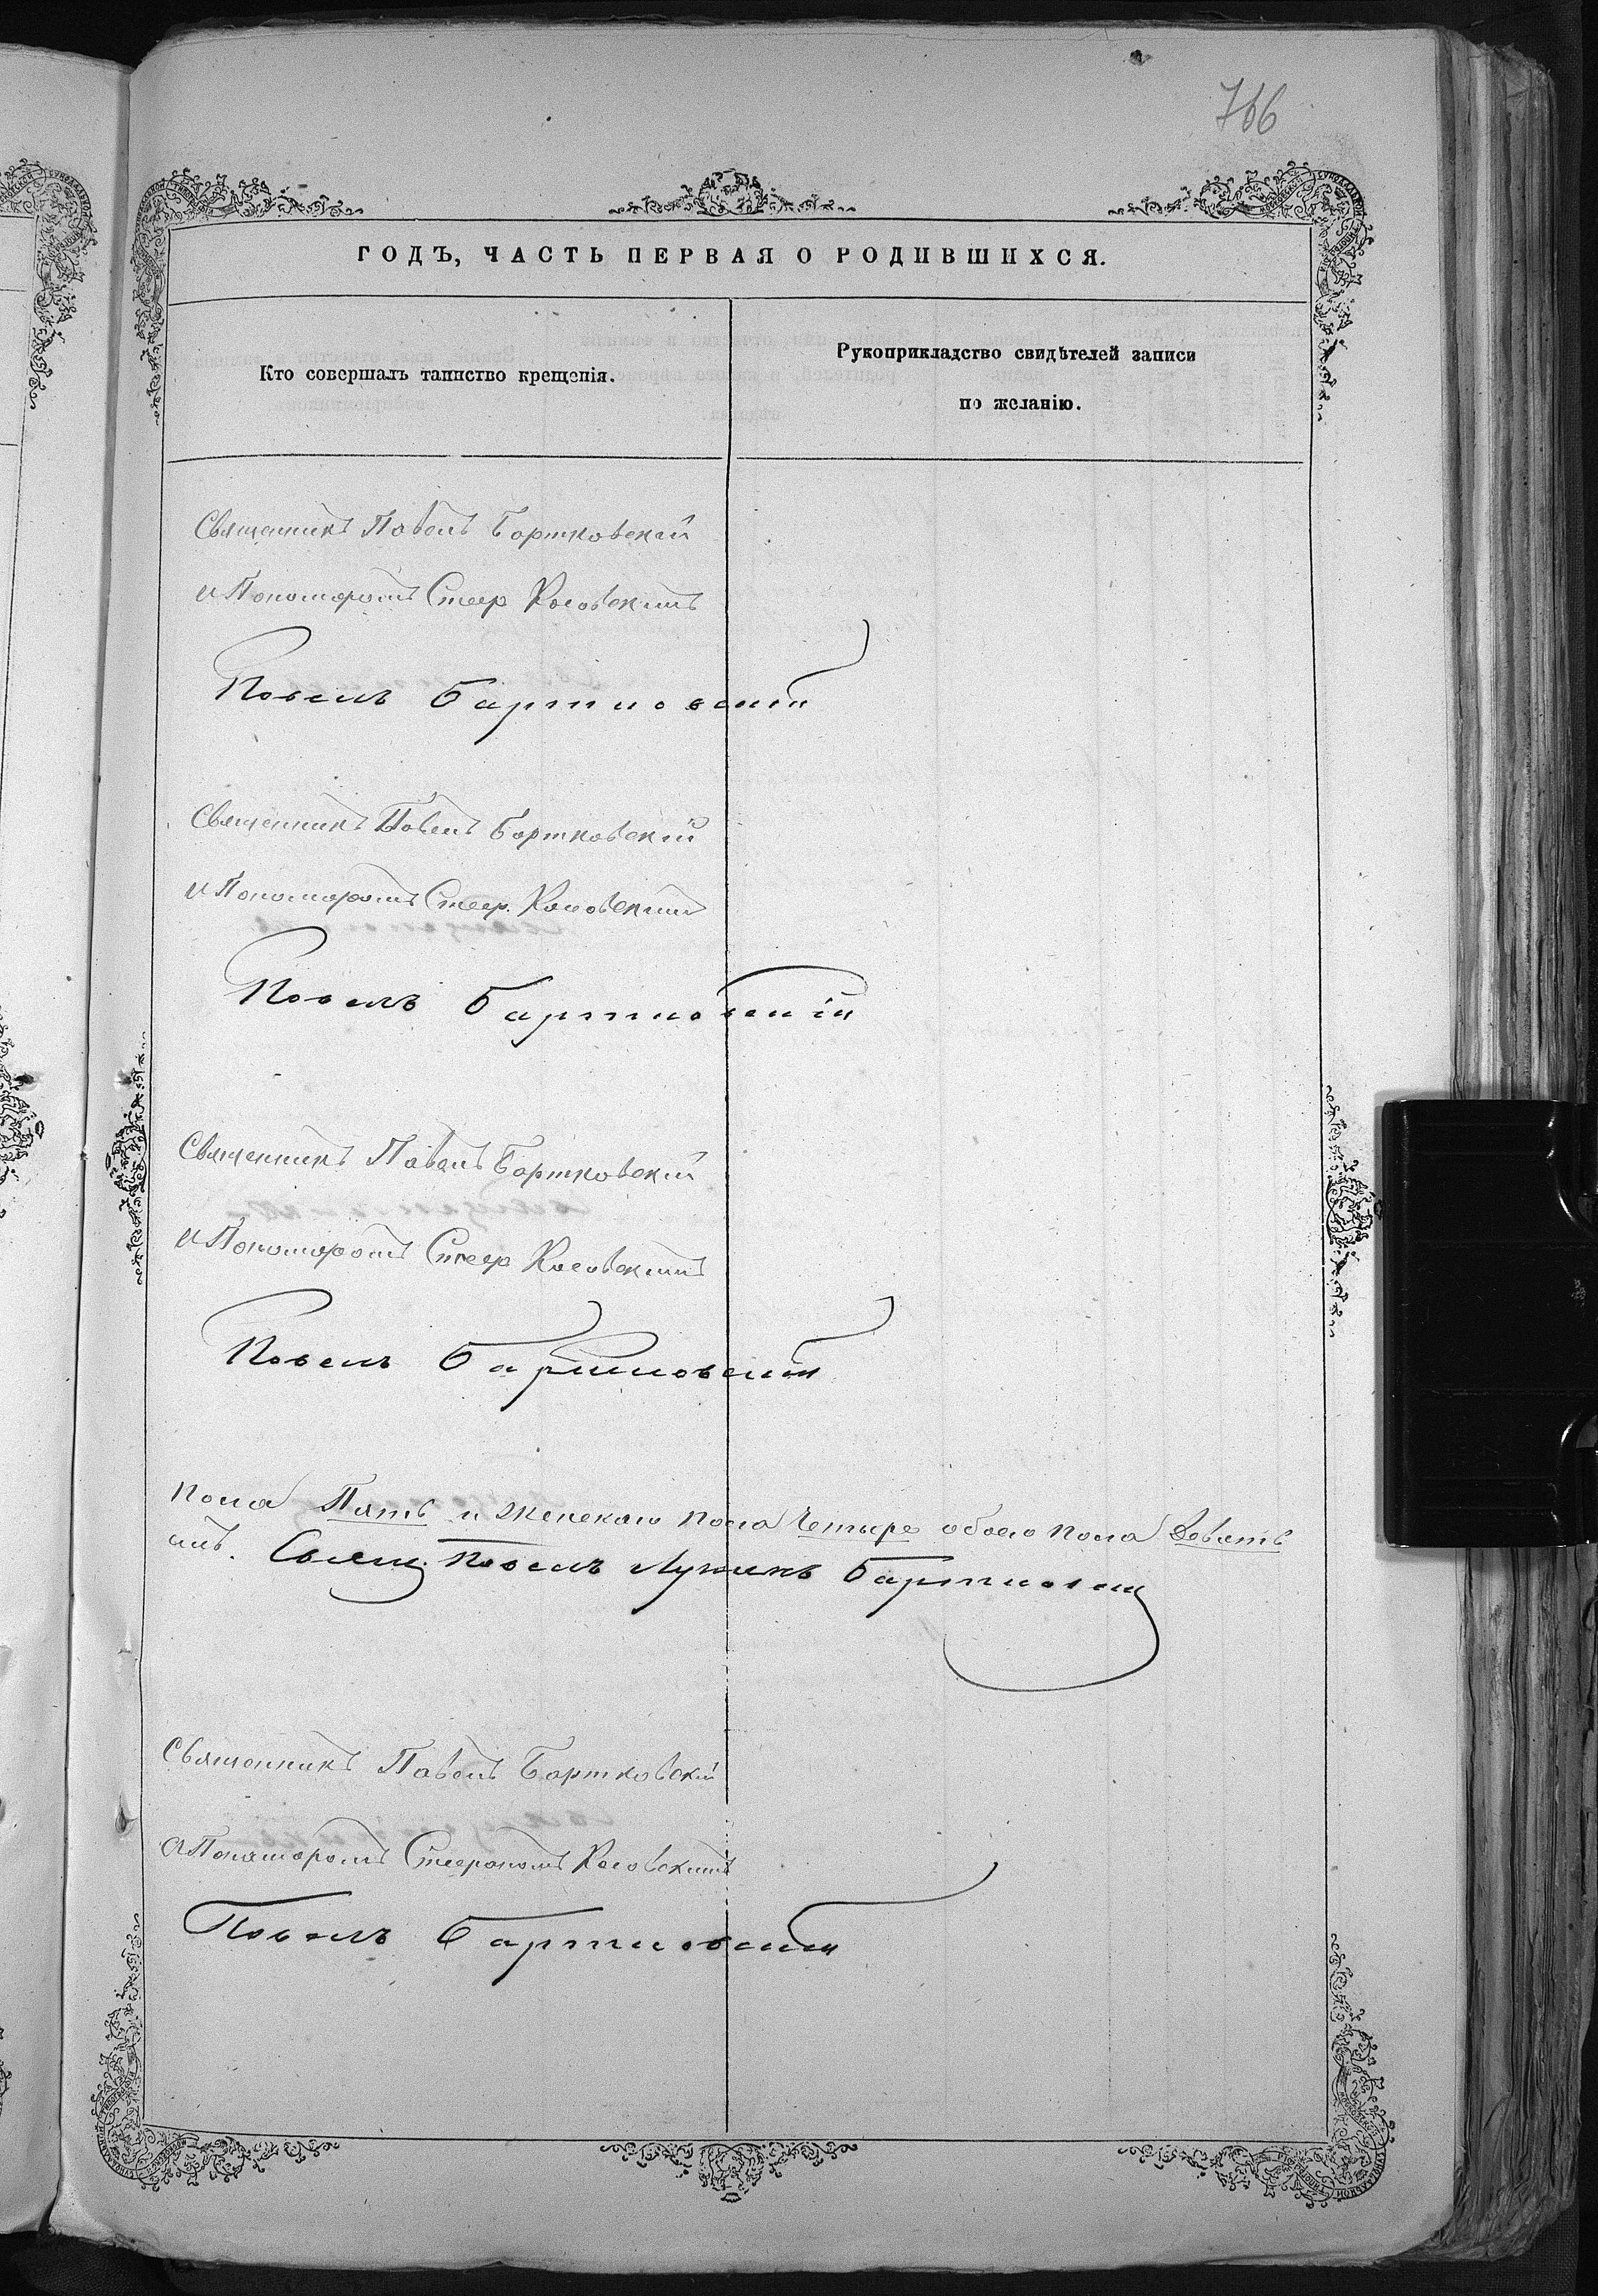 766
ГОДЪ, ЧАСТЬ ПЕРВАЯ О РОДИВШИХСЯ.
Кто совершалъ таинство крещенія.
Рукоприкладство свидѣтелей записи
по желанію.
Священникъ Павелъ Бортковскій
и Пономаромъ Стеф Косовскимъ
Павелъ Бартковскій
Священникъ Павелъ Бортковскій
и Пономаромъ Стеф. Косовскимъ
Павелъ Бартковскій
Священникъ Павелъ Бортковскій
и Пономаромъ Стеф Косовскимъ
Павелъ Бартковскій
пола Пять и Женскаго пола Четыре обоего пола Девять
Свящ. Павелъ Бартковскій
Священникъ Павелъ Бортковскій
и Пономаромъ Стефаномъ Косовскимъ
Павелъ Бартковскій